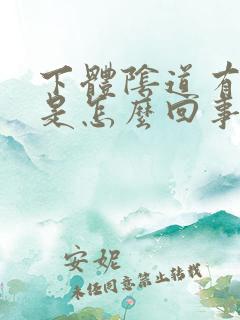 下體陰道有
是怎麼回事
安妮
未經同意禁止轉載